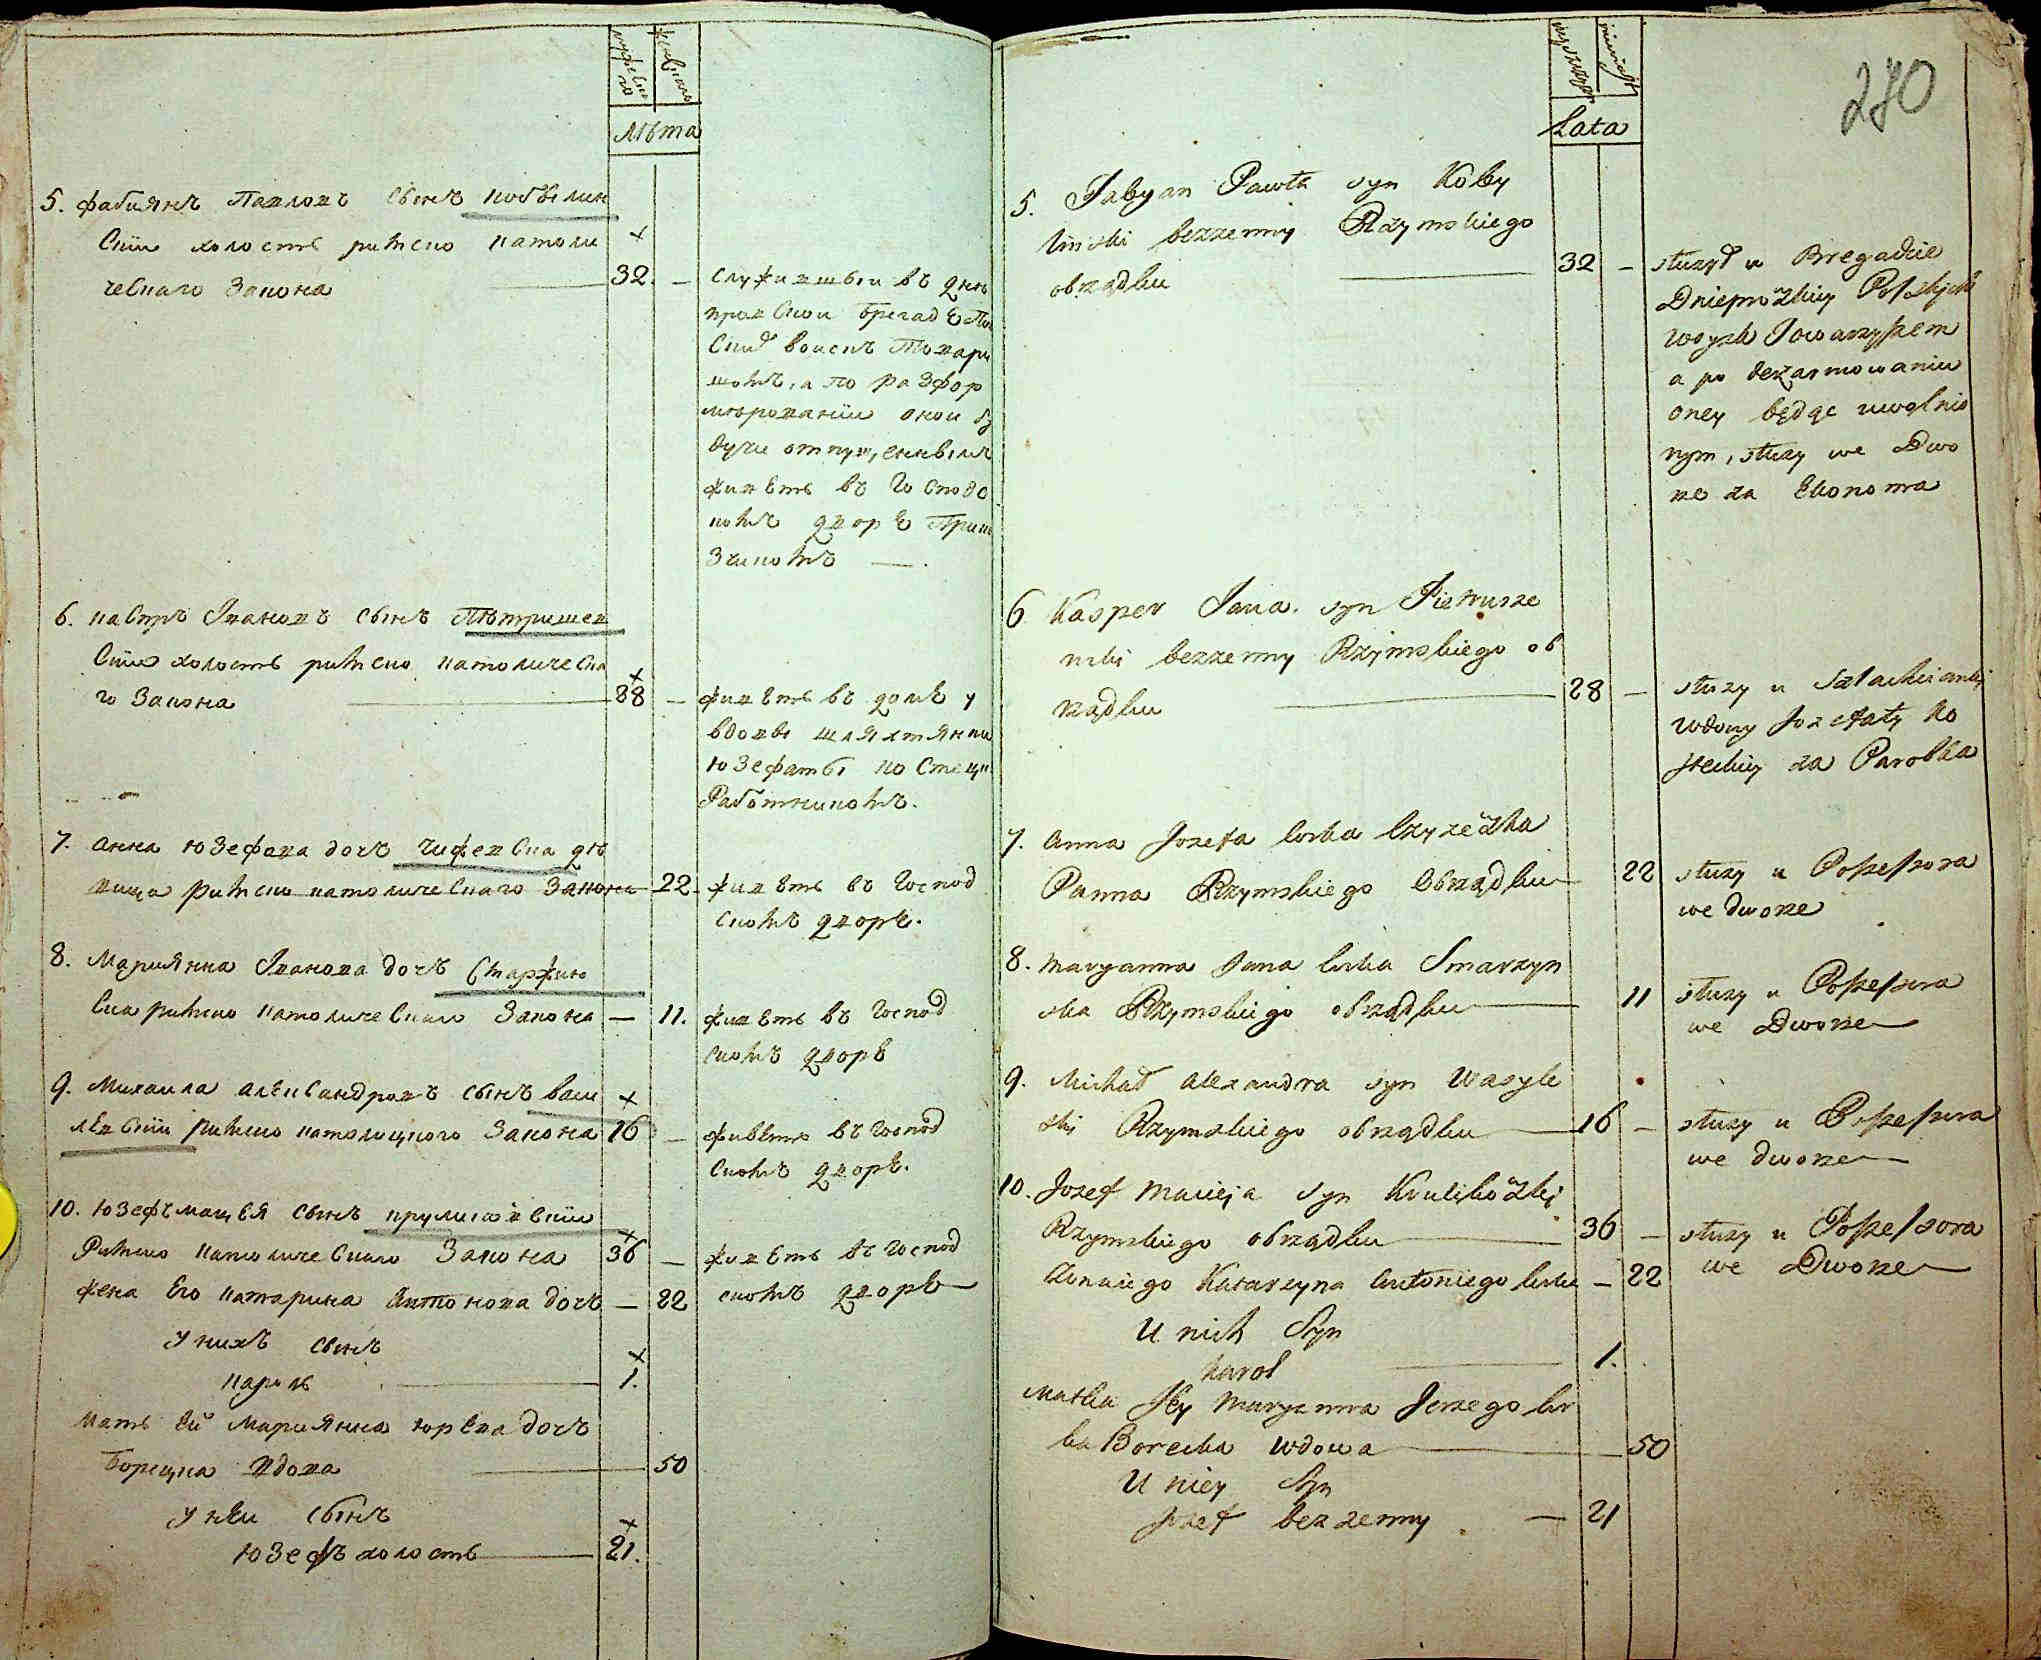 мужеска
го
женскаго
лѣта
5. Фабиянъ Павловъ сынъ Кобылин
скїи холостъ римско католи
ческаго закона 32. –
служившыи въ Дне
провскои бригадѣ По
скихъ воискъ товари
шомъ, а по разфор
мырованїи онои бу
дучи отпущенъ, слу
живетъ въ Господ
комъ дворѣ Прик
зчикомъ
6. Каспръ Ивановъ сынъ Петрушев
скїи холостъ римско католическа
го закона 28 –
живетъ въ домѣ у
вдовы шляхтянки
Юзефаты Костец
работникомъ.
7. Анна Юзефова дочь Чижевска дѣ
вица римско католическаго закона 22
живетъ въ Господ
скомъ дворѣ.
8. Марияна Иванова дочь Старжин
ска римско католическаго закона – 11.
живетъ въ Господ
скомъ дворѣ
9. Михаила Александровъ сынъ Васи
левскїи римско католицкого закона 16 –
живетъ въ Господ
скомъ дворѣ.
10. Юзефъ Мацѣя сынъ Круликовскїи
римско католическаго закона 36 –
живетъ въ Господ
скомъ дворѣ
жена его Катарина Антонова дочь – 22
у нихъ сынъ
Кароль 1.
мать ей Марияна Юрьева дочь
Борецка вдова 50
у неи сынъ
Юзефъ холостъ 21.
270
męzczyzn
niewiast
Lata
5. Fabyan Pawła syn Koby
liński bezzenny Rzymskiego
obrządku 32 –
służył w Bregadzie
Dnieprowzkiey Polskich
woysk Towarzyszem
a po dezarmowaniu
oney będąc uwolnio
nym, służy we Dwo
rze za Ekonoma
6 Kasper Jana syn Pietrusze
wski bezzenny Rzymskiego ob
rządku 28 –
służy u Szlachcianki
wdowy Jozefaty Ko
steckiey za Parobka
7. Anna Jozefa corka Czyzewzka
Panna Rzymskiego Obrządku 22
służy u Possessora
we dworze
8. Maryanna Jana corka Starzyn
ska Rzymskiego obrządku 11
służy u Possessora
we Dworze
9. Michał Alexandra syn Wasyle
ski Rzymskiego obrządku 16 –
służy u Possessora
we dworze
10. Jozef Macieja syn Krulikowzki
Rzymskiego obrządku 36 –
służy u Possessora
we Dworze
Zona iego Katarzyna Antoniego corka – 22
U nich Syn
Karol 1.
Matka Jey Maryanna Jerzego cor
ka Borecka wdowa 50
U niey Syn
Jozef bezzenny – 21